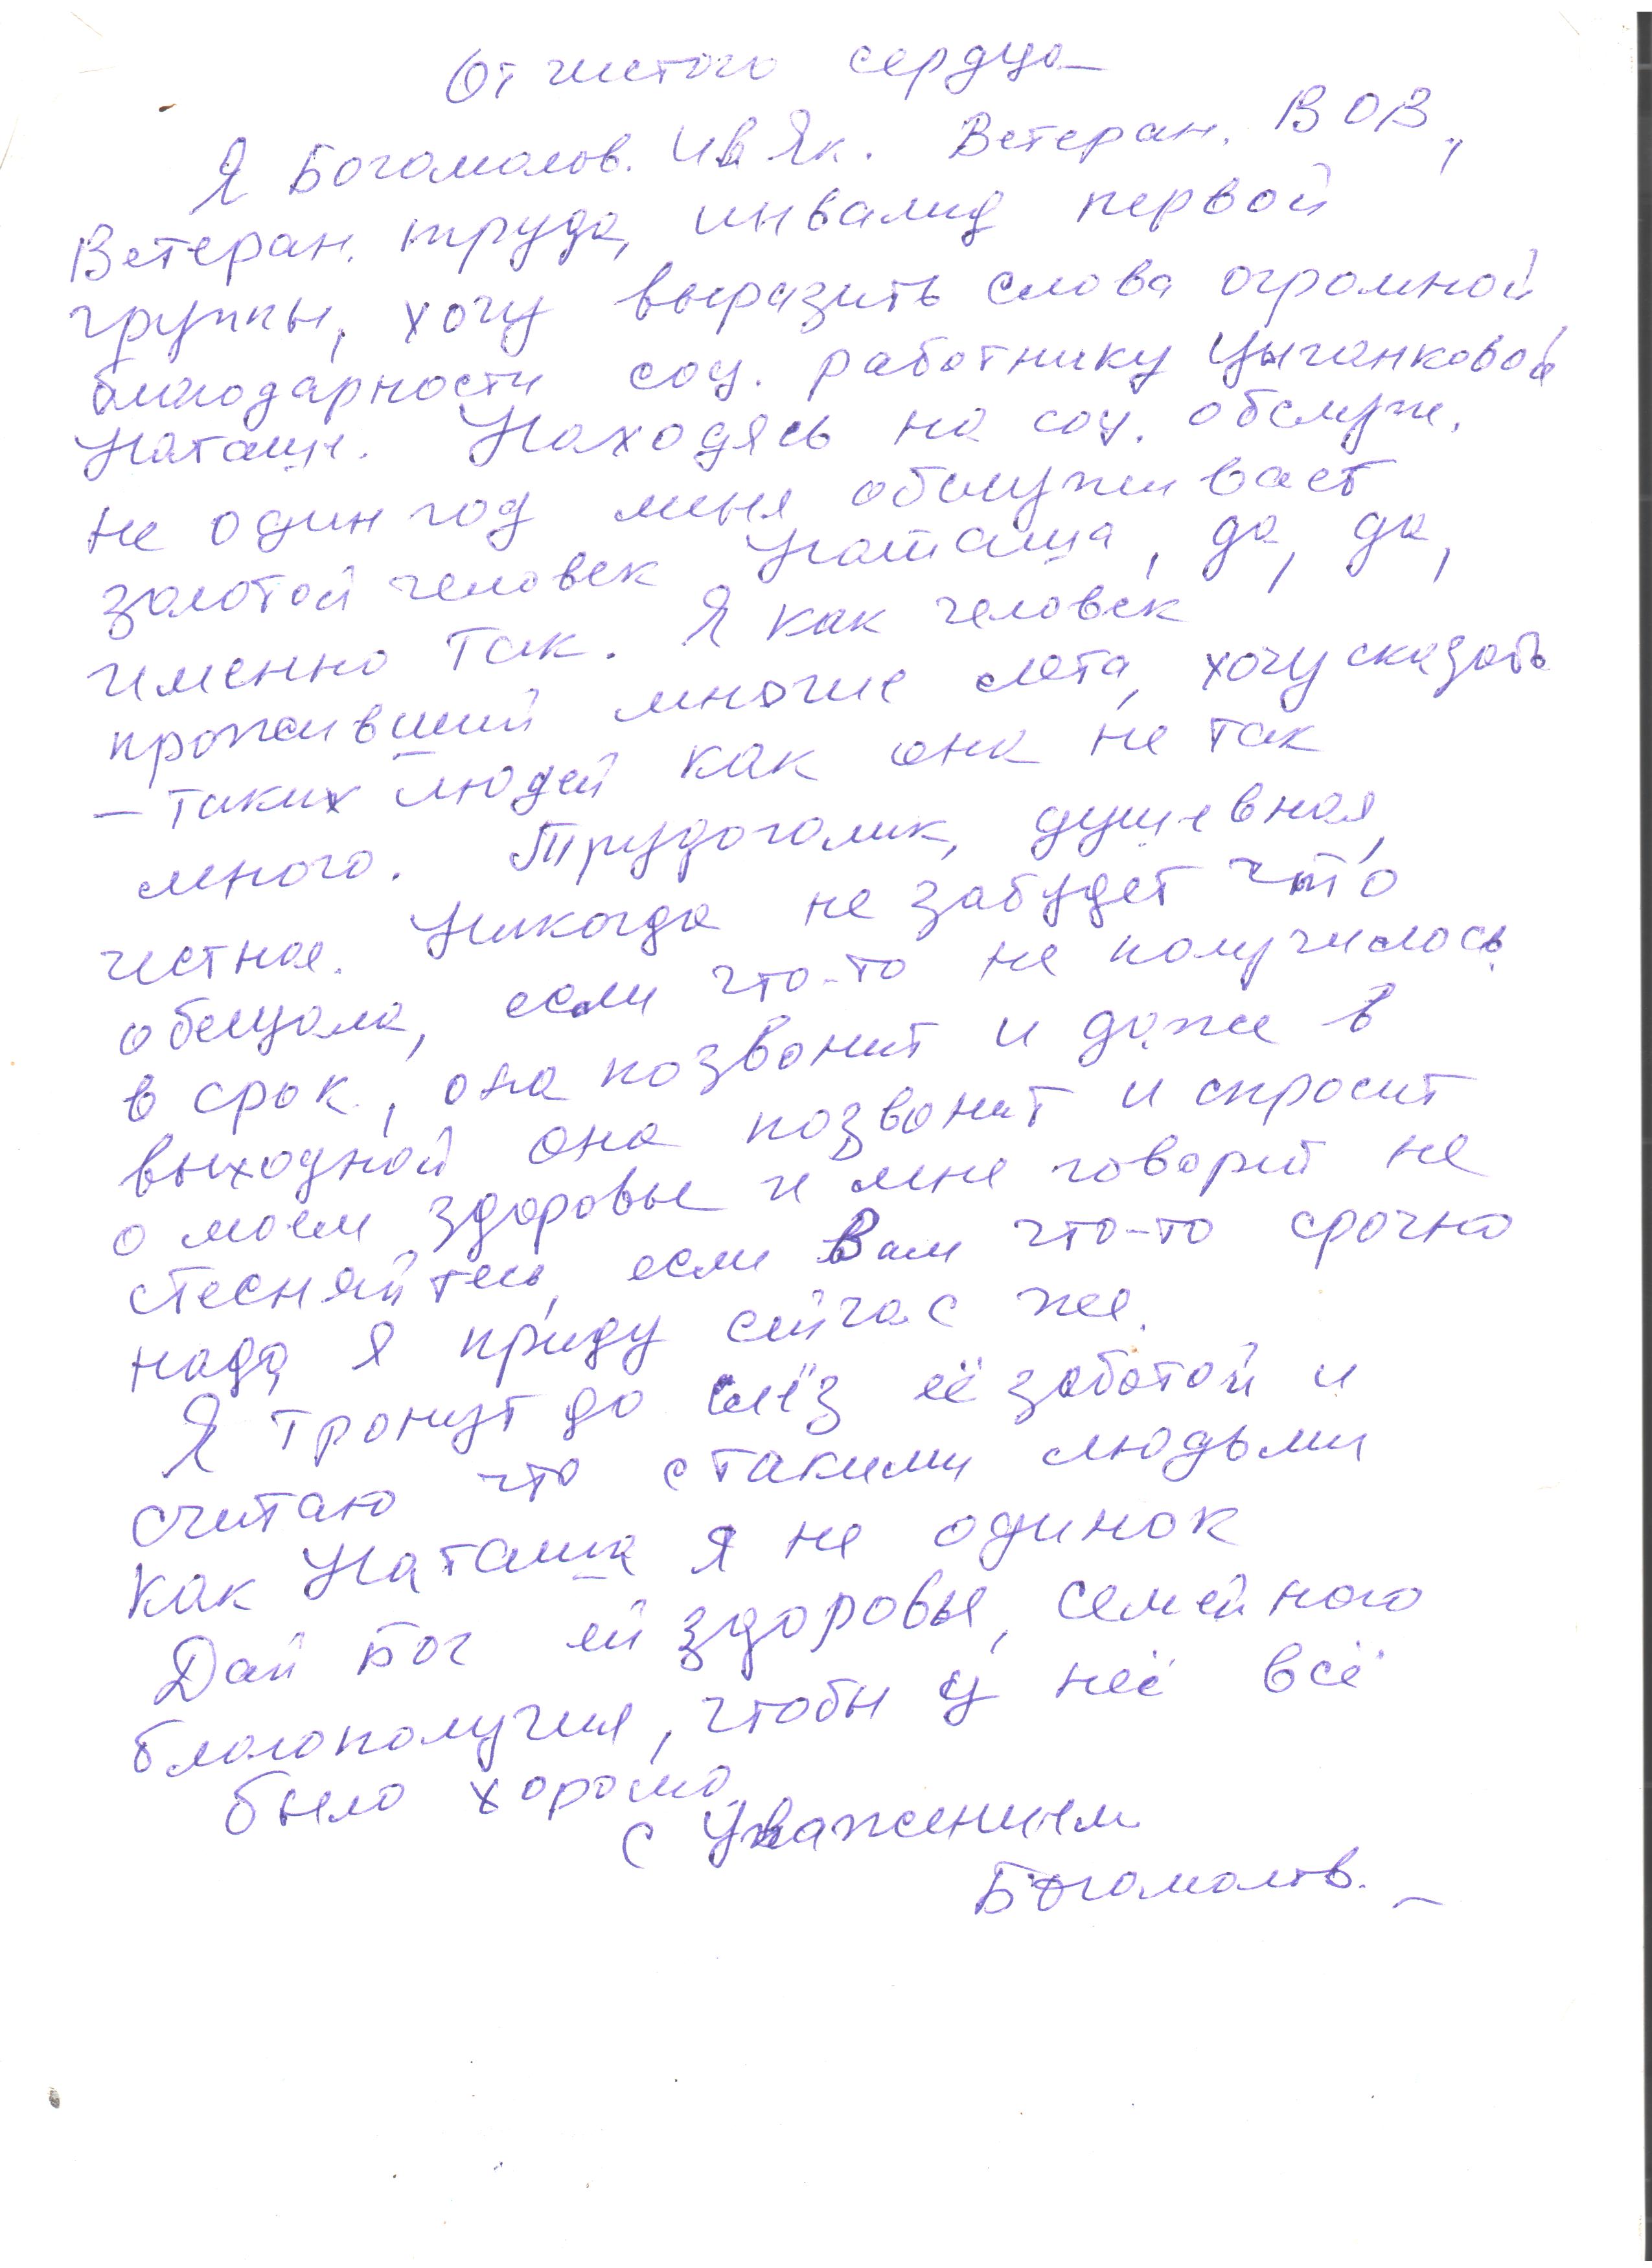 От чистого сердца
Я Богомолов. Ив Як. Ветеран. ВОВ,
Ветеран. труда, инвалид первой
группы, хочу выразить слова огромной
благодарности соц. работнику Цыганковой
Наташе. Находясь на соц. обслуж.
не один год меня обслуживает
золотой человек Наташа, да, да,
именно так. Я как человек
проживший многие лета, хочу сказать
– таких людей как она не так
много. Трудоголик, душевная,
честная. Никогда не забудет что
обещала, если что-то не получилось
в срок, она позвонит и даже в
выходной она позвонит и спросит
о моем здоровье и мне говорит не
стесняйтесь, если Вам что-то срочно
надо я приду сейчас же.
Я тронут до слёз её заботой и
считаю что с такими людьми
как Наташа я не одинок
Дай Бог ей здоровье, семейного
благополучия, чтобы у неё всё
было хорошо
с Уважением
Богомолов.